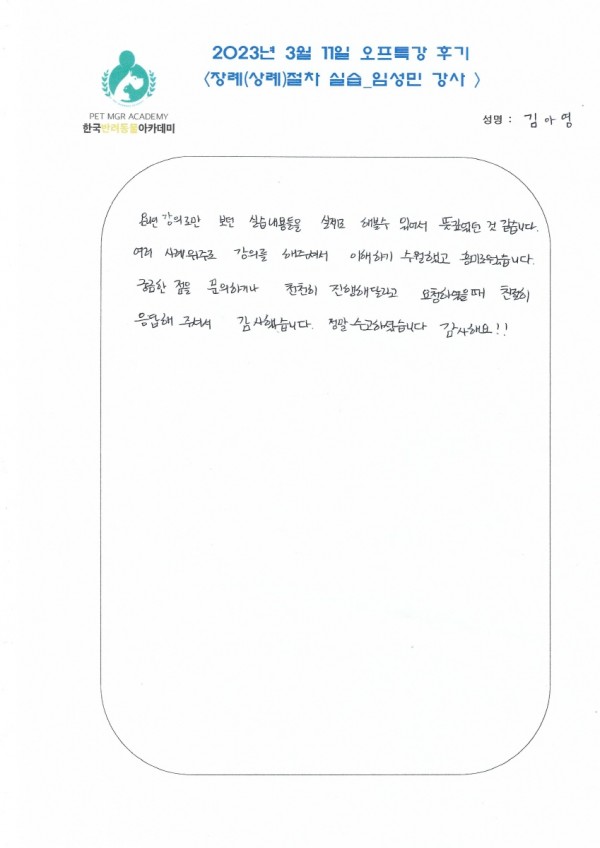 2023년 3월 11일 오프특강 후기
<장례(상례)절차 실습_임성민 강사 >
PET MGR ACADEMY
한국반려동물아카데미
성명 : 김아영
온라인 강의로만 보던 실습내용들을 실제로 해볼수 있어서 뜻깊었던 것 같습니다.
여러 사례위주로 강의를 해주셔서 이해하기 수월했고 흥미로웠습니다.
궁금한 점을 문의하거나 천천히 진행해달라고 요청하였을때 친절히
응답해 주셔서 감사했습니다. 정말 수고하셨습니다 감사해요!!